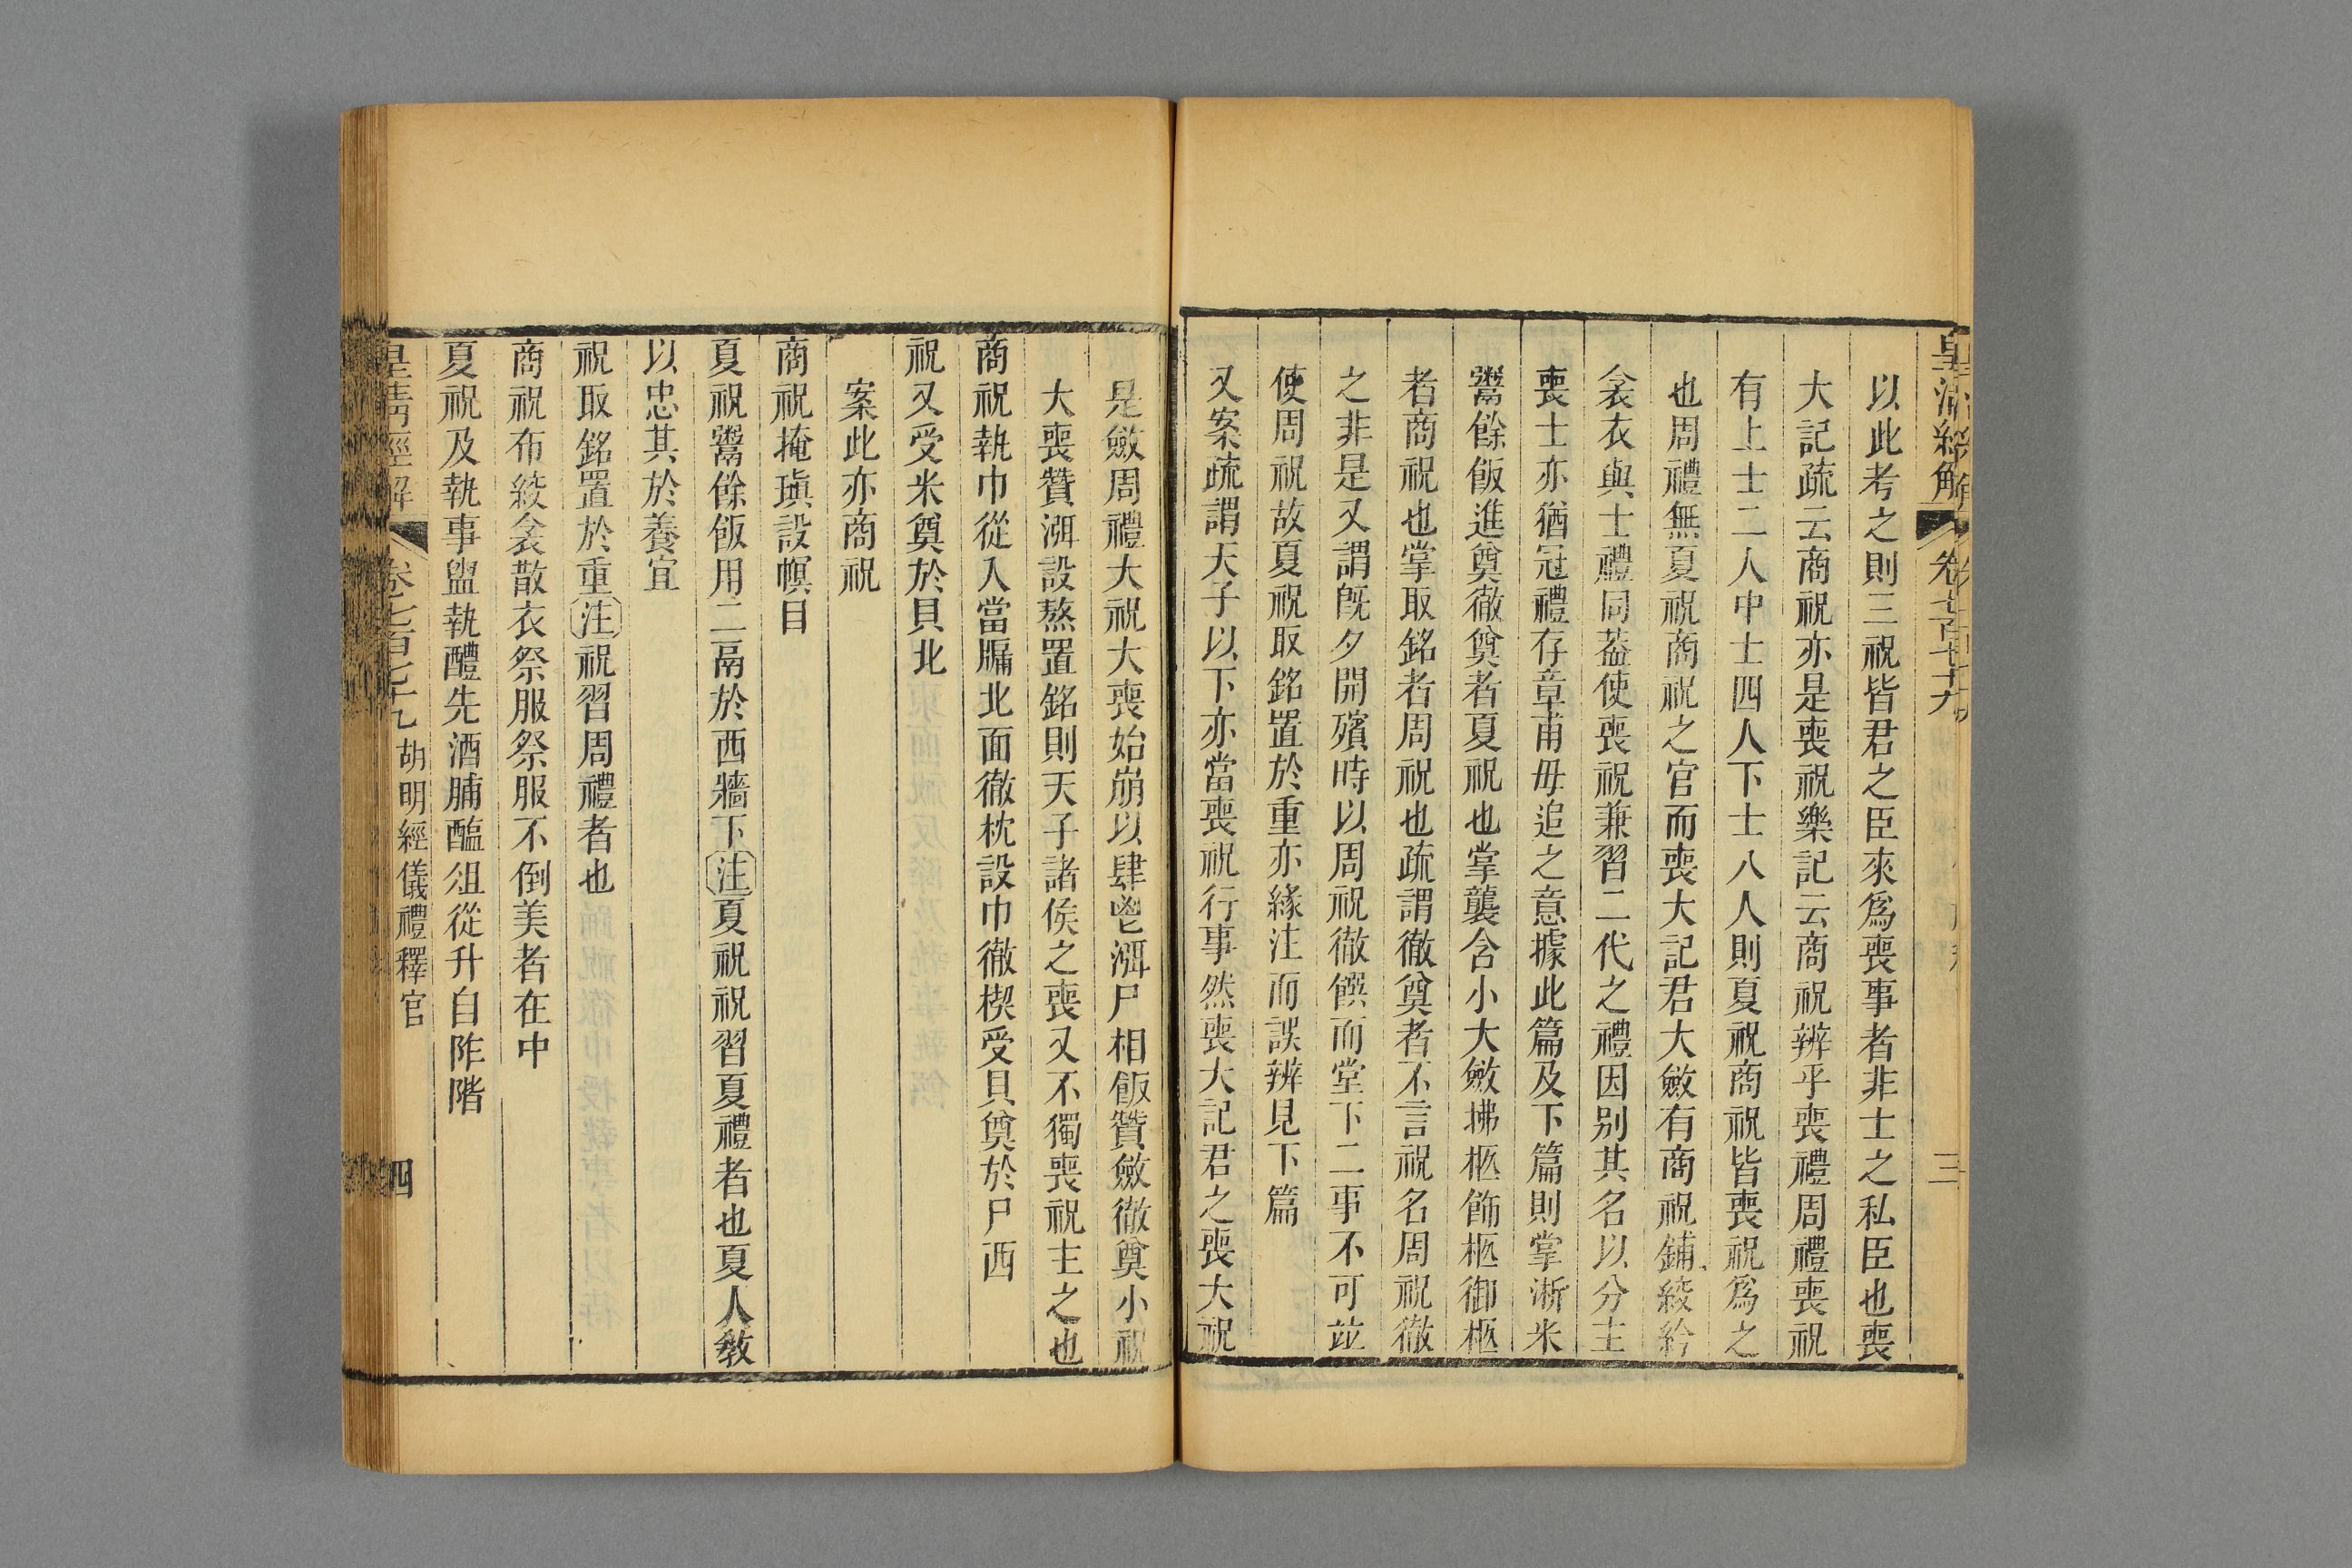 皇清經解
卷七百七十九
三
以此考之則三祝皆君之臣來爲喪事者非士之私臣也喪
大記疏云商祝亦是喪祝樂記云商祝辨乎喪禮周禮喪祝
有上士二人中士四人下士八人則夏祝商祝皆喪祝爲之
也周禮無夏祝商祝之官而喪大記君大斂有商祝鋪絞紟
衾衣與士禮同葢使喪祝兼習二代之禮因别其名以分主
喪士亦猶冠禮存章甫毋追之意據此篇及下篇則掌淅米
鬻餘飯進奠徹奠者夏祝也掌襲含小大斂拂柩飾柩御柩
者商祝也掌取銘者周祝也疏謂徹奠者不言祝名周祝徹
之非是又謂旣夕開殯時以周祝徹饌而堂下二事不可竝
使周祝故夏祝取銘置於重亦緣注而誤辨見下篇
又案疏謂天子以下亦當喪祝行事然喪大記君之喪大祝
是斂周禮大祝大喪始崩以肆鬯渳尸相飯贊斂徹奠小祝
大喪贊渳設熬置銘則天子諸侯之喪又不獨喪祝主之也
商祝執巾從入當牖北面徹枕設巾徹楔受貝奠於尸西
祝又受米奠於貝北
案此亦商祝
商祝掩瑱設幎目
夏祝鬻餘飯用二鬲於西牆下注夏祝祝習夏禮者也夏人教
以忠其於養宜
祝取銘置於重注祝習周禮者也
商祝布絞衾散衣祭服祭服不倒美者在中
夏祝及執事盥執醴先酒脯醢俎從升自阼階
皇清經解
卷七百七十九
胡明經儀禮釋官
四